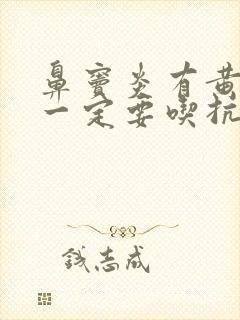 鼻竇炎有黃
一定要喫抗
錢志成